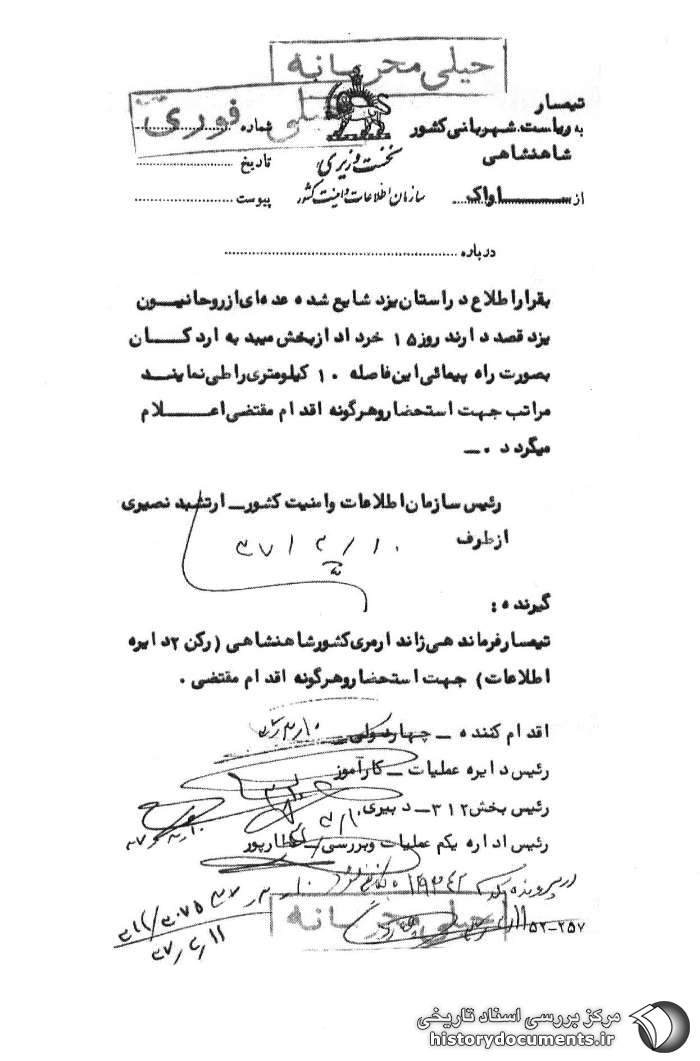 خیلی محرمانه
خیلی فوری
تیمسار
به ریاست شهربانی کشور
شاهنشاهی
از ســـاواک
نخست وزیری
سازمان اطلاعات و امنیت کشور
شماره
تاریخ
پیوست
درباره
بقرار اطلاع در استان یزد شایع شده عده‌ای از روحانیون
یزد قصد دارند روز ۱۵ خرداد از بخش میبد به اردکان
بصورت راه پیمائی این فاصله ۱۰ کیلومتری را طی نمایند
مراتب جهت استحضار و هرگونه اقدام مقتضی اعلام
میگردد .ـ
رئیس سازمان اطلاعات و امنیت کشور ـ ارتشبد نصیری
از طرف
گیرنده :
تیمسار فرماندهی ژاندارمری کشور شاهنشاهی (رکن ۲ دایره
اطلاعات) جهت استحضار و هرگونه اقدام مقتضی .
اقدام کننده ـ چهاردولی
رئیس دایره عملیات ـ کارآموز
رئیس بخش ۳۱۲ ـ دبیری
رئیس اداره یکم عملیات و بررسی / عطارپور
خیلی محرمانه
۵۲-۲۵۷
مرکز بررسی اسناد تاریخی
historydocuments.ir